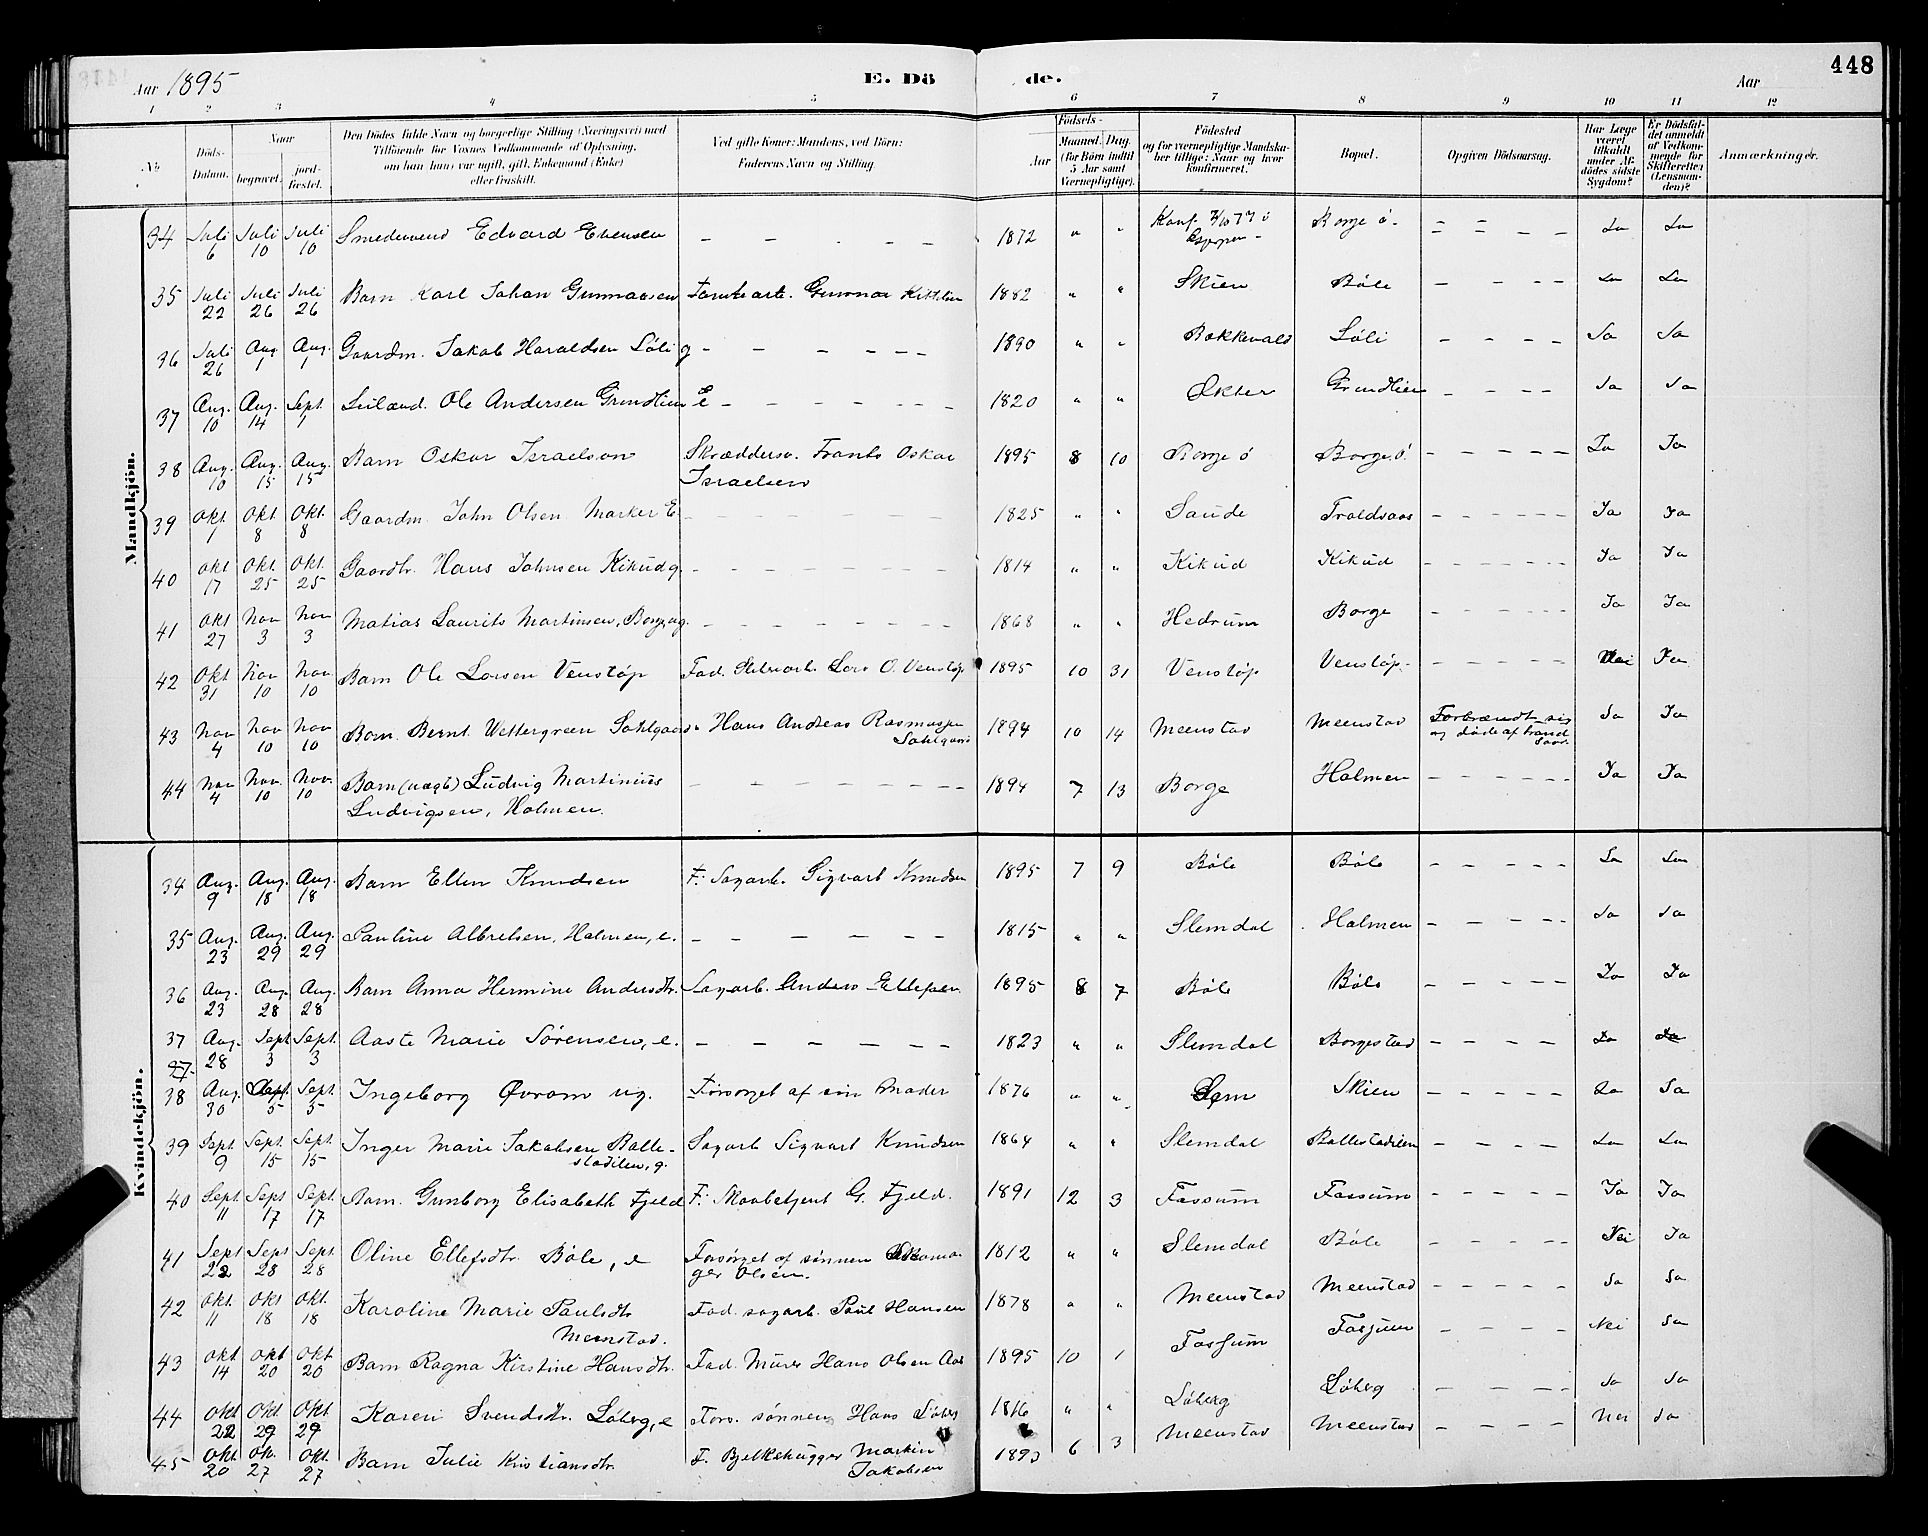 448
Aar 1895
E. Dö de.
Aar
1 2 3 4 5 6 7 8 9 10 11 12
No
Döds-Datum.
Naar
begravet.
jord-fæstet.
Den Dödes fulde Navn og borgerlige Stilling (Næringsvei) med
Tilföiende for Voxnes Vedkommende af Oplysning,
om han (hun) var ugift, gift, Enkemand (Enke)
eller fraskilt.
Ved gifte Koner: Mandens, ved Börn:
Faderens Navn og Stilling.
Aar
Födsels-
Maaned. Dag.
(for Börn indtil
5 Aar samt
Værnepligtige).
Födested
og for værnepligtige Mandska-
ber tillige: Naar og hvor
konfirmeret.
Bopæl.
Opgiven Dödsaarsag.
Har Læge
været
tilkaldt
under Af-
dödes sidste
Sygdom?
Er Dödsfal-
det anmeldt
af Vedkom-
mende for
Skifteretten
(Lensman-
den)?
Anmærkninger.
Mandkjön.
34 Juli 6 Juli 10 Juli 10 Smedesvend Edvard Evensen – – – – – 1872 " " Konf. 7/10 77 i Gjerpen – Borge ö. – – – – Ja Ja
35 Juli 22 Juli 26 Juli 26 Barn Karl Johan Gunnarsen Gunnar Kittilsen 1882 " " Skien Böle – – – – Ja Ja
36 Juli 26 Aug. 1 Aug. 1 Gaardm. Jakob Haraldsen Löli g – – – – – – 1890 " " Bakkevald Löli – – – – Ja Ja
37 Aug. 10 Aug. 14 Sept. 1 Leilænd. Ole Andersen Grindlien E – – – – – – 1820 " " Økter Grindlien – – – – Ja Ja
38 Aug. 10 Aug. 15 Aug. 15 Barn Oskar Israelsen Skræddersv. Frants Oskar
Israelsen 1895 8 10 Borge ö Borge, ö. – – – – – Ja Ja
39 Okt 1 Okt 8 Okt. 8 Gaardm. John Olsen Marker E. – – – – – – 1825 " " Saude Troldsaas – – – – – Ja Ja
40 Okt 17 Okt. 25 Okt. 25 Gaardbr. Hans Johnsen Kikud g. – – – – – – 1814 " " Kikud Kikud – – – – – Ja Ja
41 Okt 27 Nov 3 Nov 3 Matias Laurits Martinsen, Borge, ug. – – – – – – 1868 " " Hedrum Borge – – – – – Ja Ja
42 Okt 31 Nov 10 Nov 10 Barn Ole Larsen Venstöp Fad. Lars O. Venstöp 1895 10 31 Venstöp Venstöp – – – – – Nei Ja
43 Nov 4 Nov 10 Nov 10 Barn Bernt Wettergreen Sahlgaard " Hans Andreas Rasmussen
Sahlgaard 1894 10 14 Meenstad Meenstad Forbrændt sig
og döde af brand
saar. Ja Ja
44 Nov 4 Nov. 10 Nov. 10 Barn (uægt) Ludvig Martinius
Ludvigsen, Holmen. – – – – – – – 1894 7 13 Borge Holmen – – – – – Ja Ja
Kvindekjön.
34 Aug. 9 Aug. 18 Aug. 18 Barn Ellen Knudsen F: Sagarb. Sigvart Knudsen 1895 7 9 Böle Böle – – – – – Ja Ja
35 Aug. 23 Aug. 29 Aug. 29 Pauline Albretsen, Holmen, e. – – – – – 1815 " " Slemdal Holmen – – – – Ja Ja
36 Aug. 23 Aug. 28 Aug. 28 Barn Anna Hermine Andersdtr. Sagarb. Anders Ellefsen 1895 8 7 Böle Böle – – – – – Ja Ja
37 Aug. 28 Sept 3 Sept. 3 Aaste Marie Sörensen, e. – – – – – – 1823 " " Slemdal Borgestad – – – – Ja Ja
38 Aug. 30 Sept. 5 Sept. 5 Ingeborg Øvrom ug. Forsörget af sin Moder 1876 " " Skien – – – – Ja Ja
39 Sept. 9 Sept. 15 Sept. 15 Inger Marie Jakobsen Balle-
stadlien, g. Sagarb Sigvart Knudsen 1864 " " Slemdal Ballestadlien – – – – Ja Ja
40 Sept. 11 Sept 17 Sept. 17 Barn. Gunborg Elisabeth Fjeld F: Skovbetjent G. Fjeld. 1891 12 3 Fossum Fossum – – – – – Ja Ja
41 Sept 22 Sept 28 Sept. 28 Oline Ellefsdtr. Böle, e Forsörget af sönnen
ger Olsen. 1812 " " Slemdal Böle – – – – Nei Ja
42 Okt. 11 Okt 18 Okt. 18 Karoline Marie Paulsdtr
Meenstad. Fad. sagarb. Paul Hansen 1878 " " Meenstad Meenstad – – – – – Ja Ja
43 Okt 14 Okt 20 Okt 20 Barn Ragna Kirstine Hansdtr. Fad. Murer Hans Olsen Aas 1895 10 1 Fossum Fossum – – – – Nei Ja
44 Okt 22 Okt 29 Okt. 29 Karen Svendsdtr. Löberg, e Fors. sönnen Hans Löberg 1816 " " Löberg Löberg – – – – Ja Ja
45 Okt. 20 Ok. 27 Okt. 27 Barn Julie Kristiansdtr. F. Bjelkehugger Martin
Jakobsen 1893 6 3 Meenstad Meenstad – – – – Nei Ja